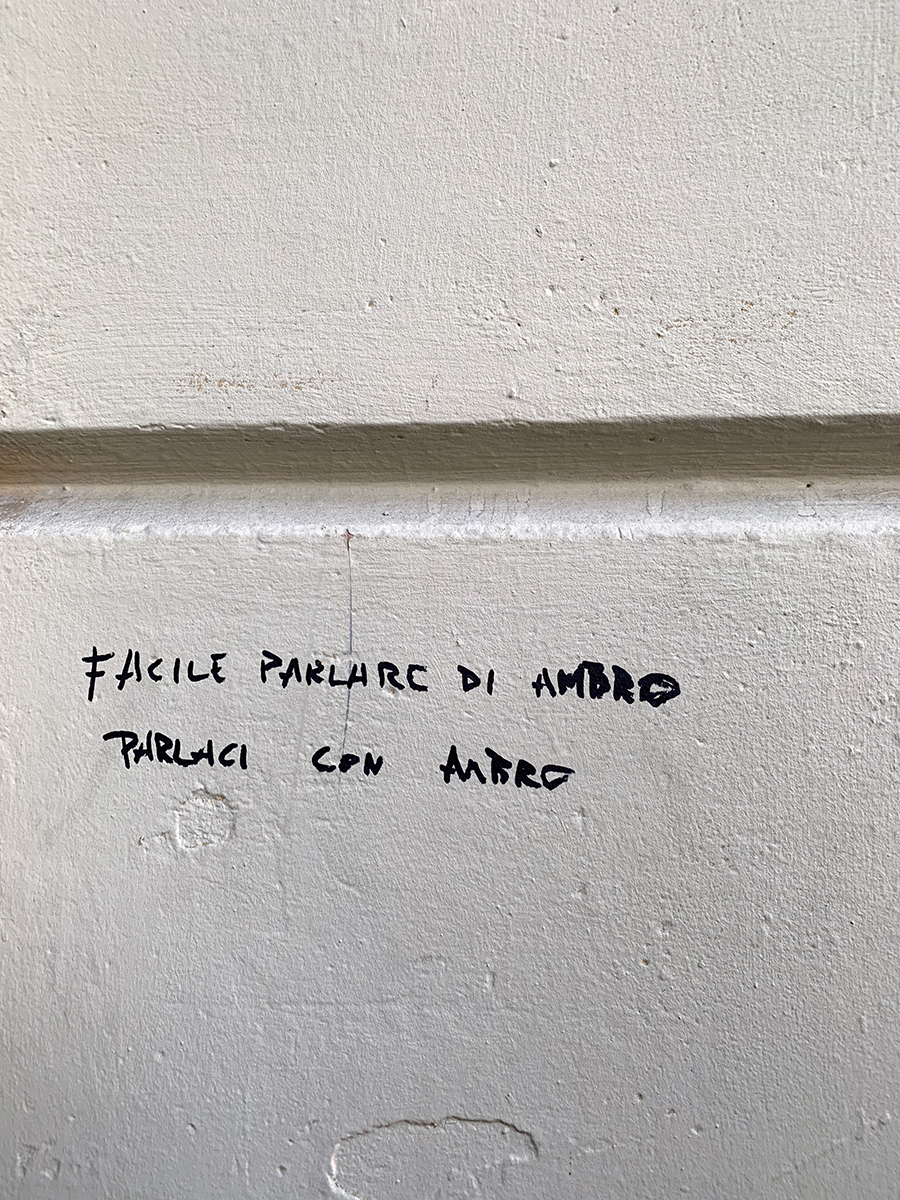 FACILE PARLARE DI AMBRO
PARLACI CON AMBRO